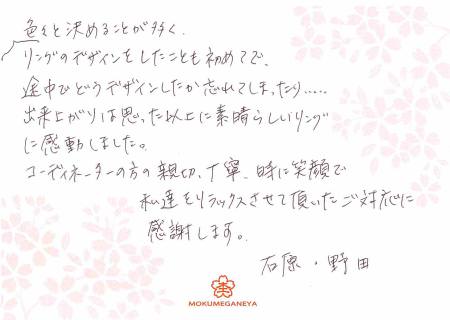 色々と決めることが多く、
リングのデザインをしたことも初めてで、
途中でどうデザインしたか忘れてしまったり.....
出来上がりは思った以上に素晴らしいリング
に感動しました。
コーディネーターの方の親切、丁寧、時に笑顔で
私達をリラックスさせて頂いたご対応に
感謝します。
石原・野田
MOKUMEGANEYA